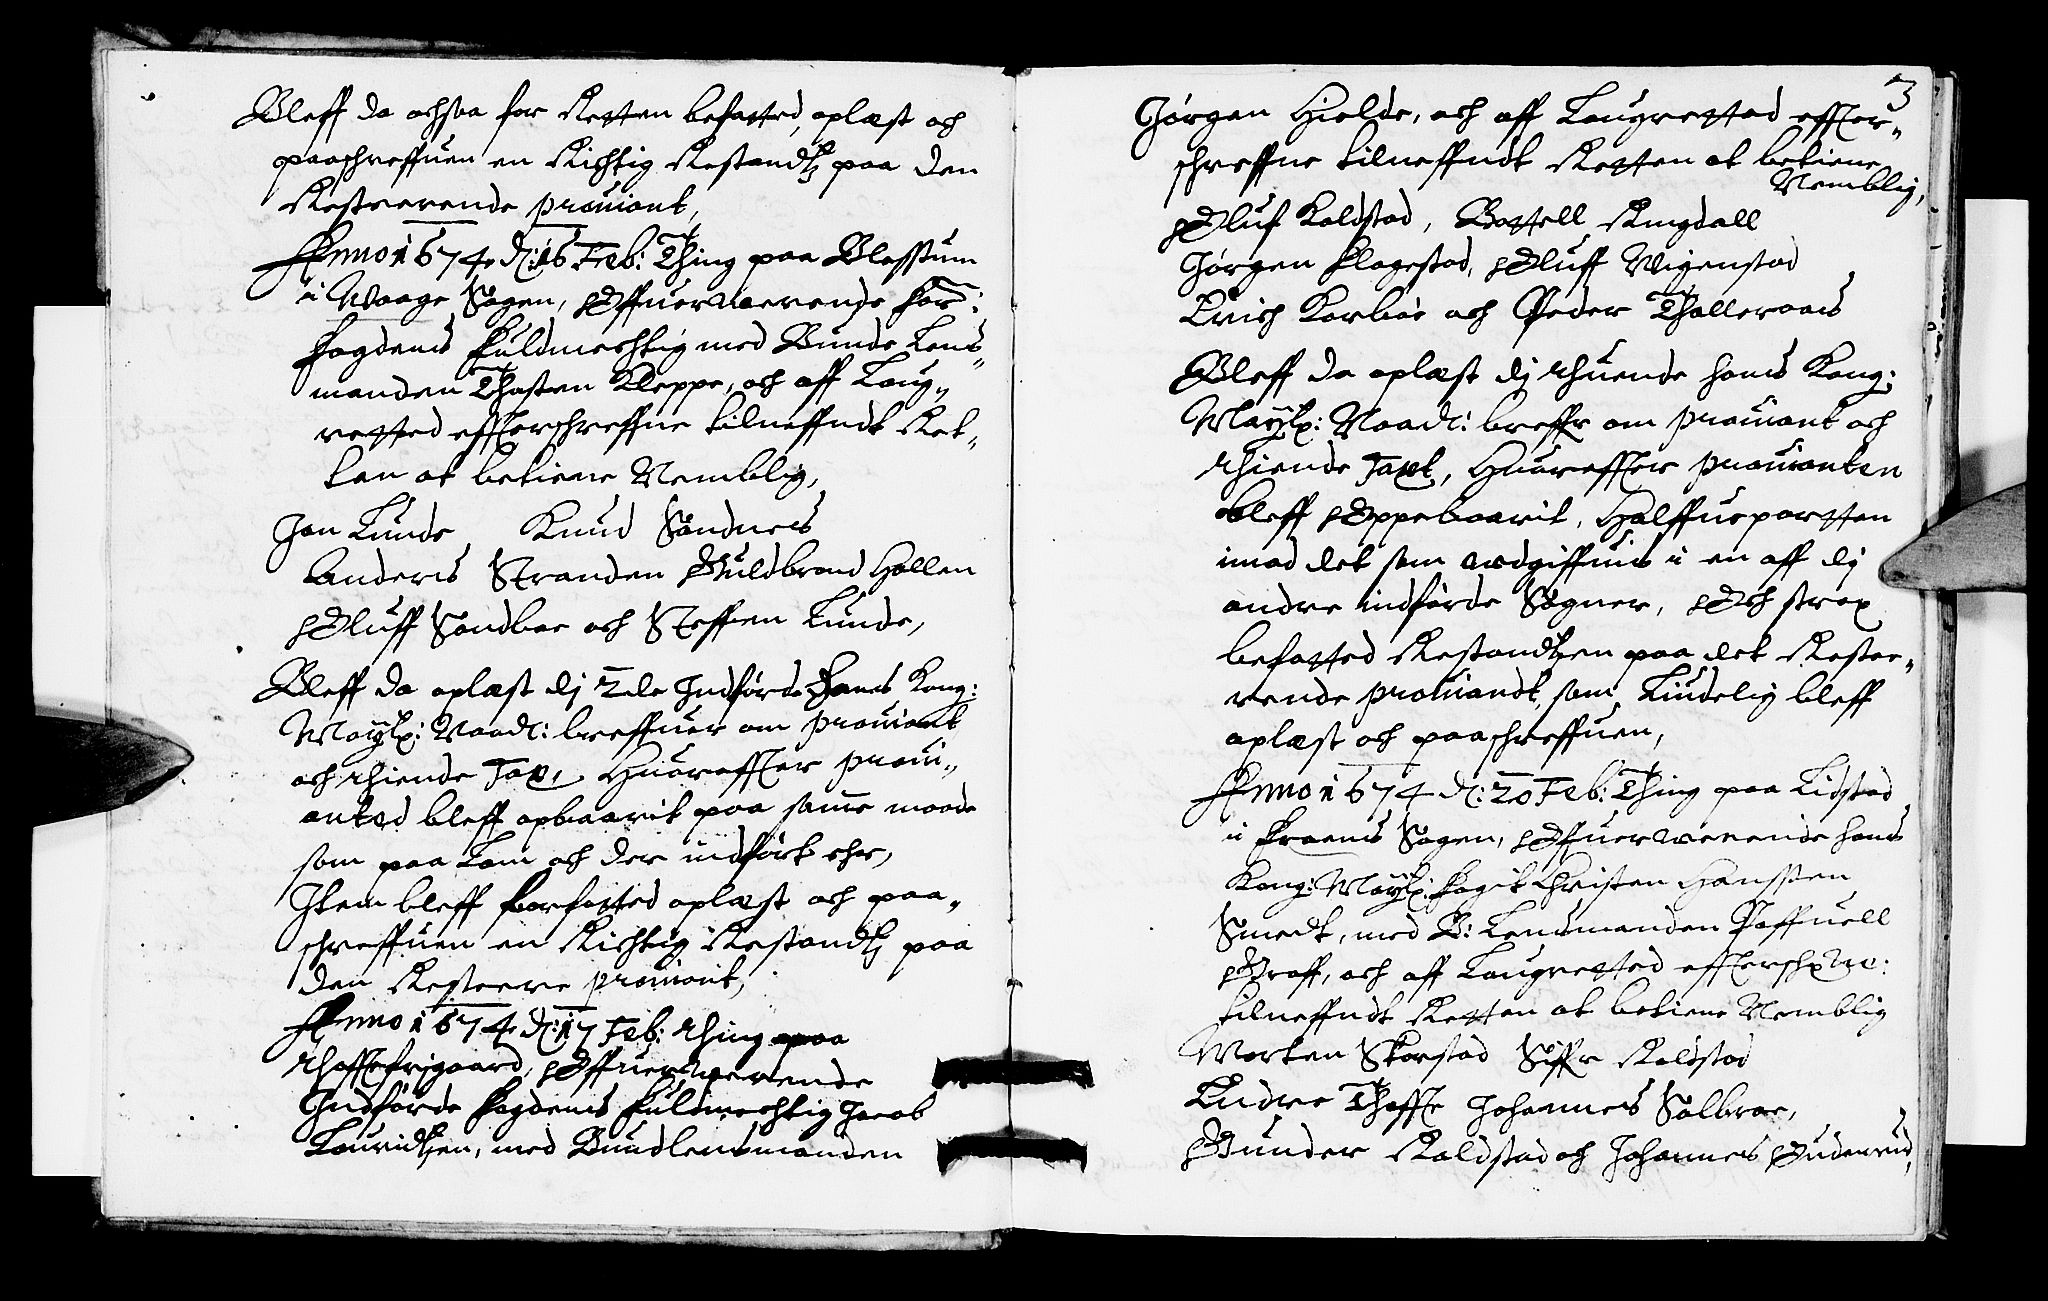 Bleff da ochsaa for Retten befatted, oplæst och
paaschreffuen en Richtig Restandtz paa den
Resterende proviant,
Anno 1674 d: 16 Feb: Thing paa Blessum
i Waage Sogen, Offuerwerende for:
fogdens fuldmechtig med Bunde Lens„
manden Thosten Kleppe, och aff Laug„
retted effterschreffne tilneffndt Ret„
ten at betiene Nemblig,
Jon Lunde Knud Sandnes
Anders Stranden Guldbrand Hollen
Oluff Sandboe och Steffen Lunde,
Bleff da oplæst dj 2de Indførde Hans Kong:
Maytz: Naad: breffuer om proviant
och thiende Taxt, Huoreffter provi„
anted bleff opbaarit paa samme maade
som paa Lom och der indført ehr,
Item bleff forfatted oplæst och paa„
schreffuen en Richtig Restandtz paa
den Resterre proviant,
Anno 1674 d: 17 Feb: thing paa
thofftefrjgaard, Offuerwerende
Indførde fogdens fuldmechtig Jacob
Lauridtzen, med Bundlensmanden
3
Jørgen Hielde, och aff Laugretted effter„
schreffne tilneffndt Retten at betiene
Nemblig,
Oluf Koldstad, Bottell Ringdall
Jørgen Klagestad, Oluff Wigenstad
Erich Korboe och Peder Tholleraas
Bleff da oplæst dj thuende hans Kong:
Maytz: Naad: breffr om proviant och
thiende Taxt, Huoreffter provianten
bleff Oppebaarit, Halffueparten
imod det som udgiffuis i en aff dj
andre indførde Sogner, Och strax
befatted Restandtzen paa det Reste„
rende proviandt, som Liudelig bleff
oplæst och paaschreffuen,
Anno 1674 d: 20 Feb: Thing paa Lidstad
i froens Sogen, Offuerwerende hans
Kong: Maytz: fogit Christen Hanssen
Smedt, med B: Lensmanden Paffuell
Graff, och aff Laugretted efftersch:ne:
tilneffndt Retten at betiene Nemblig
Morten Skorstad Siffr Kolstad
Endre Thoffte Johannes Solbroe,
Gunder Koldstad och Johannes Guderud,